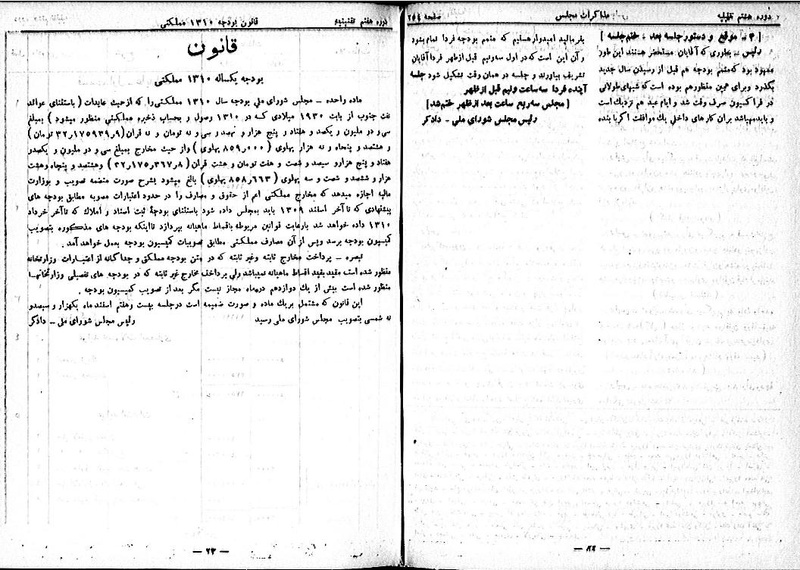 دوره هفتم تقنینیه
مذاکرات مجلس
صفحه ۲۵۴
[ ۴ ـ موقع و دستور جلسه بعد ـ ختم جلسه ]
رئیس ـ بطوری که آقایان مستحضر هستند این طور
معهود بود که متمم بودجه هم قبل از رسیدن سال جدید
بگذرد و برای همین منظور هم بوده است که شبهای طولانی
در فراکسیون صرف وقت شد و ایام عید هم نزدیک است
و باید مهیا شد برای کارهای داخلی یک موافقت اگر بابنده
بفرمائید امیدوار هستیم که متمم بودجه فردا تمام بشود
و آن این است که در اول سه ونیم قبل از ظهر فردا آقایان
تشریف بیاورند و جلسه در همان وقت تشکیل شود جلسه
آینده فردا سه ساعت ونیم قبل از ظهر
[ مجلس سه ربع ساعت بعد از ظهر ختم شد ]
رئیس مجلس شورای ملی ـ دادگر
دوره هفتم تقنینیه
قانون بودجه ۱۳۱۰ مملکتی
قانون
بودجه یکساله ۱۳۱۰ مملکتی
ماده واحده ـ مجلس شورای ملی بودجه سال ۱۳۱۰ مملکتی را که از حیث عایدات ( باستثنای عوائد
نفت جنوب از بابت ۱۹۳۰ میلادی که در ۱۳۱۰ وصول و بحساب ذخیره مملکتی منظور میشود ) بمبلغ
سی و دو ملیون و یکصد و هفتاد و پنج هزار و نهصد و سی و نه تومان و نه قران ( ۳۲٫۱۷۵۹۳۹٫۹ تومان )
و هشتصد و پنجاه و نه هزار پهلوی ( ۸۵۹٫۰۰۰ پهلوی ) و از حیث مخارج بمبلغ سی و دو ملیون و یکصدو
هفتاد و پنج هزار و سیصد و شصت و هفت تومان و هشت قران ( ۳۲٫۱۷۵٫۳۶۷٫۸ ) و هشتصد و پنجاه وهشت
هزار و ششصد و شصت و سه پهلوی ( ۸۵۸٫۶۶۳ پهلوی ) بالغ میشود بشرح صورت منضمه تصویب و بوزارت
مالیه اجازه میدهد که مخارج مملکتی اعم از حقوق و مصارف را در حدود اعتبارات مصوبه مطابق بودجه های
پیشنهادی که تا آخر اسفند ۱۳۰۹ باید بمجلس داده شود باستثنای بودجهٔ ثبت اسناد و املاک که تا آخر خرداد
۱۳۱۰ داده خواهد شد بارعایت قوانین مربوطه باقساط ماهیانه بپردازد تا اینکه بودجه های مذکوره بتصویب
کمیسیون بودجه برسد وپس از آن مصارف مملکتی مطابق تصویبات کمیسیون بودجه بعمل خواهد آمد .
تبصره ـ پرداخت مخارج ثابته وغیر ثابته که در متن بودجه مملکتی و جداگانه از اعتبارات وزارتخانه
منظور شده است مقید بقید اقساط ماهیانه نمیباشد ولی پرداخت مخارج غیر ثابته که در بودجه های تفصیلی وزارتخانها
منظور شده است بیش از یک دوازدهم درماه مجاز نیست مگر بعد از تصویب کمیسیون بودجه .
این قانون که مشتمل بر یک ماده و صورت ضمیمه است در جلسه بیست و هفتم اسفند ماه یکهزار و سیصدو
نه شمسی بتصویب مجلس شورای ملی رسید
رئیس مجلس شورای ملی ـ دادگر
— ۲۳ —